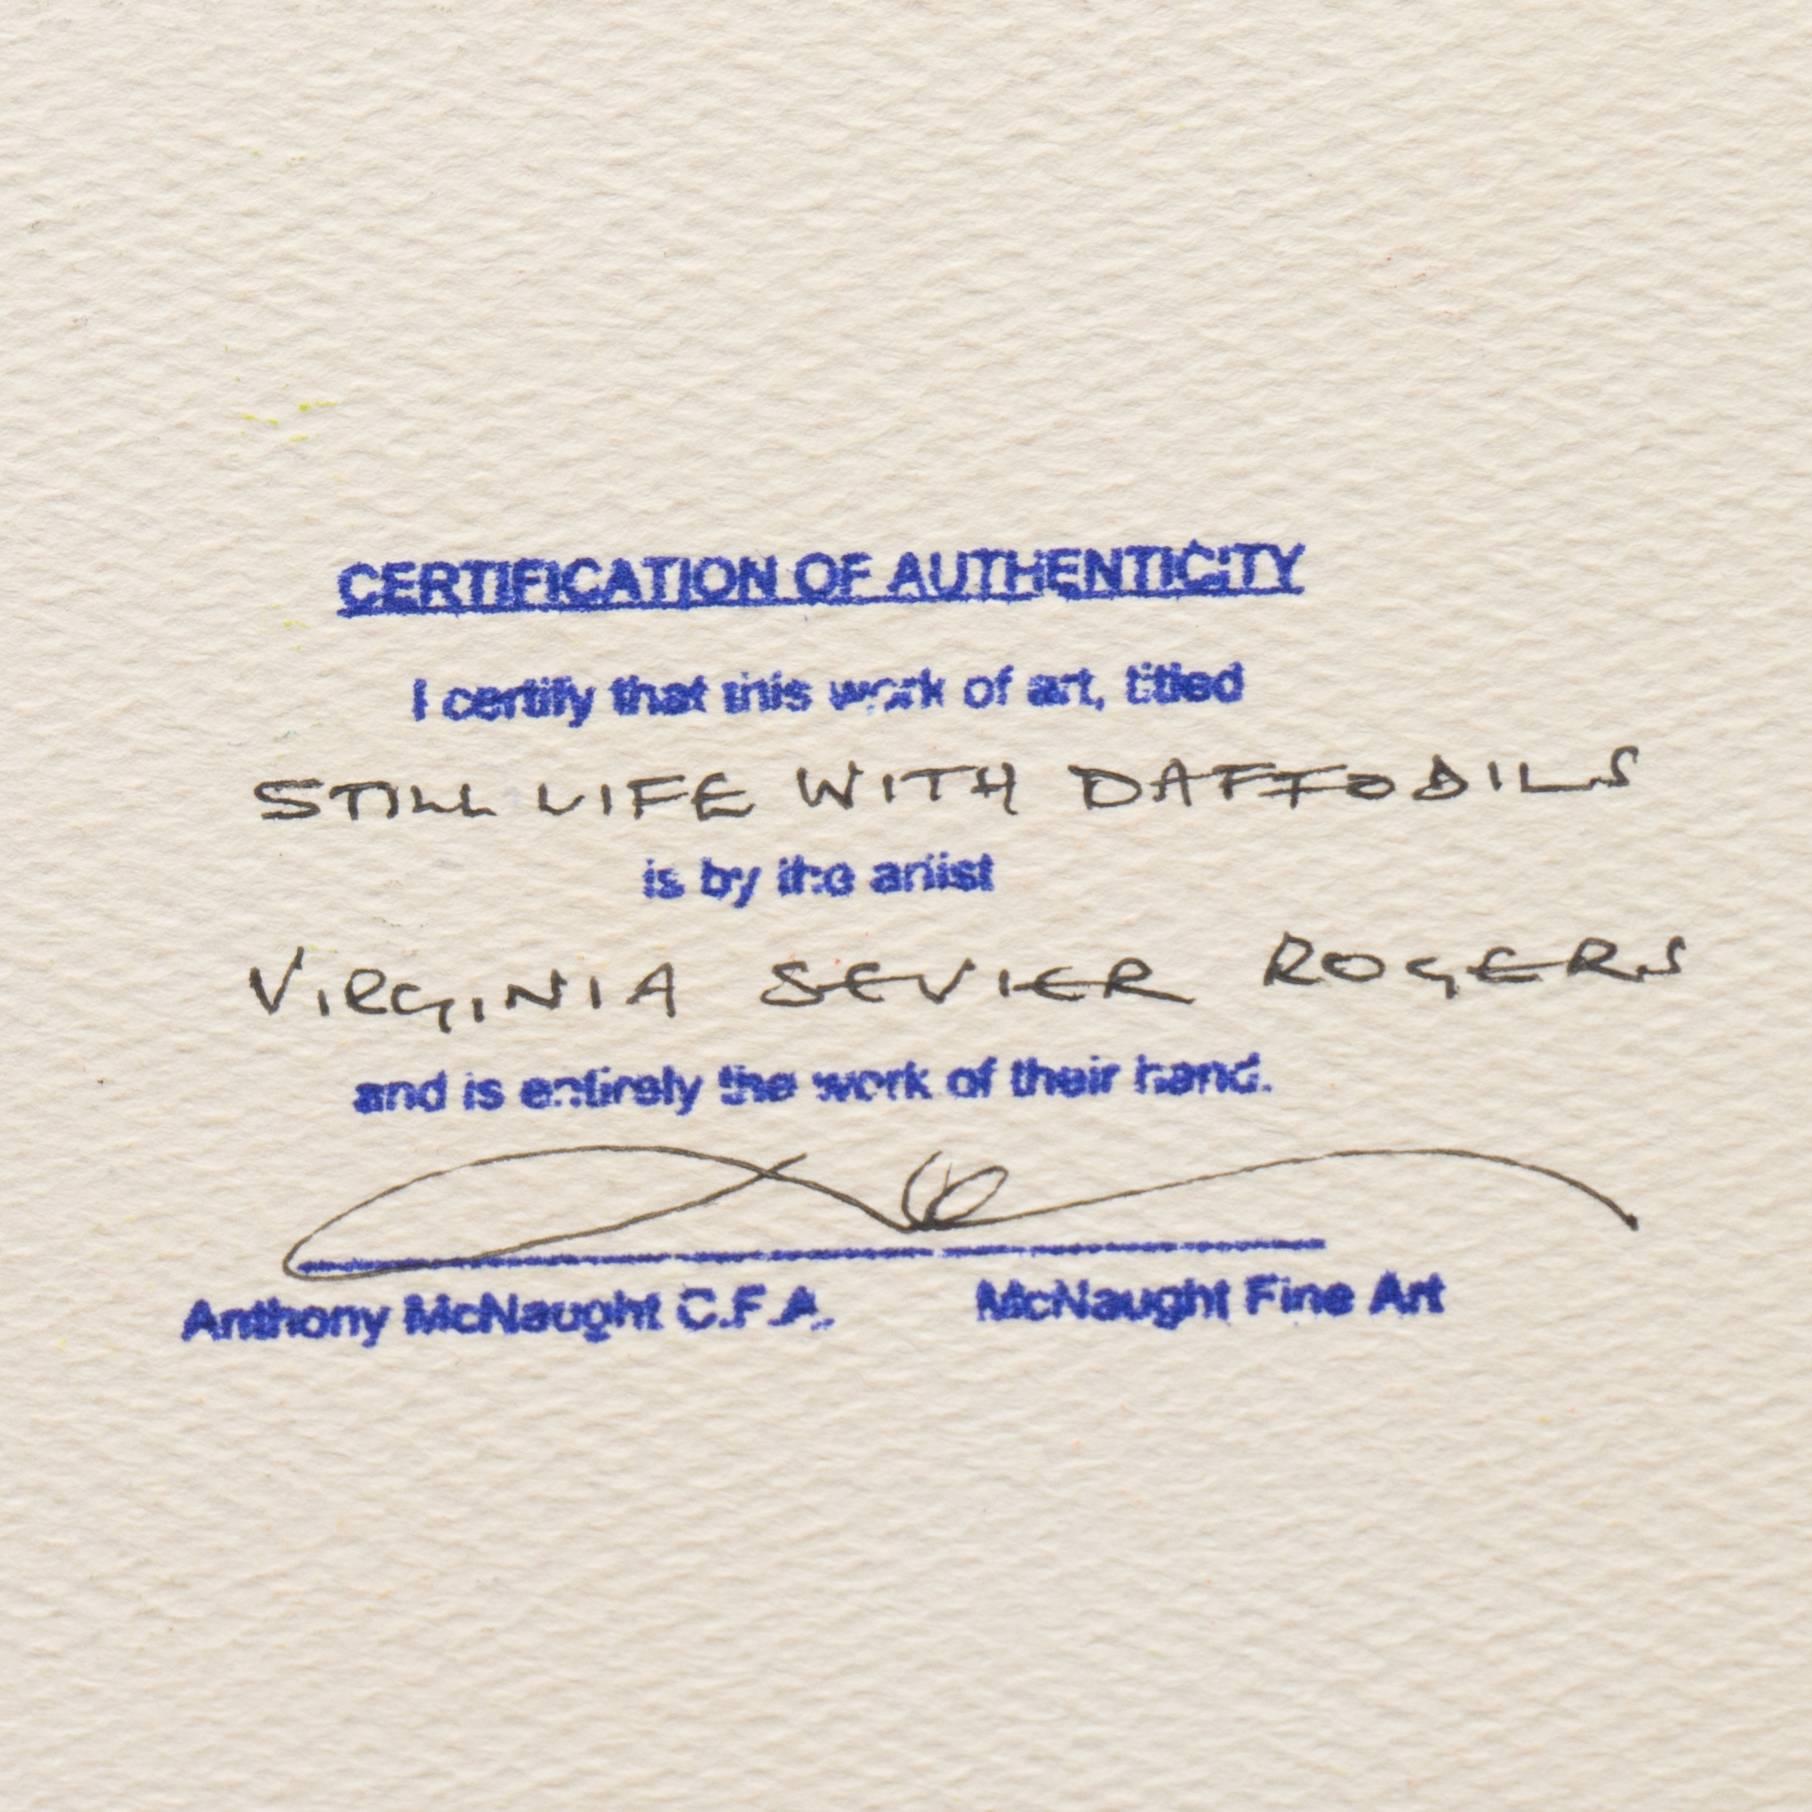 CERTIFICATION OF AUTHENTICITY
I certify that this work of art, titled
STILL LIFE WITH DAFFODILS
is by the artist
VIRGINIA SEVIER ROGERS
and is entirely the work of their hand.
Anthony McNaught C.F.A. McNaught Fine Art